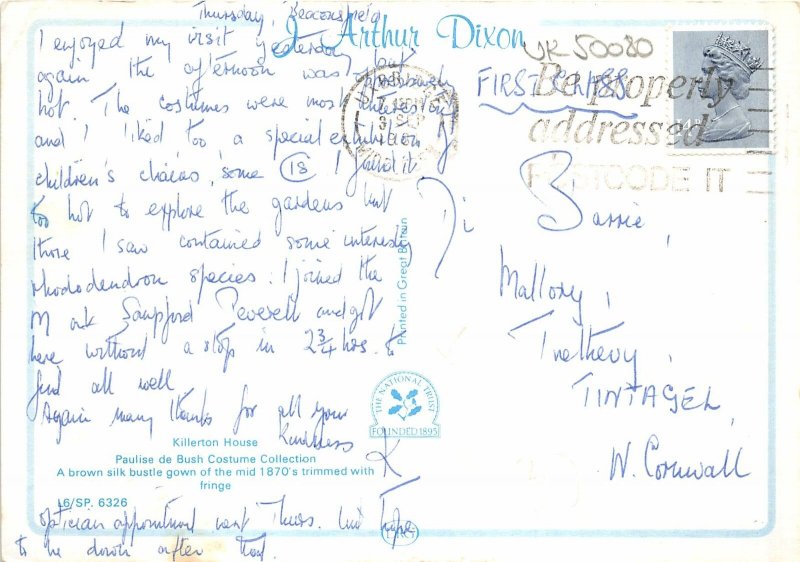 Thursday, Beaconsfield
I enjoyed my visit yesterday but
again the afternoon was oppressively
hot. The costumes were most interesting
and I liked too a special exhibition of
children's chairs, some (18) I found it
too hot to explore the gardens but
those I saw contained some interesting
rhododendron species. I joined the
M at Sampford Peverell and got
here without a stop in 2¾ hrs. to
find all well
Again many thanks for all your
kindness K
Killerton House
Paulise de Bush Costume Collection
A brown silk bustle gown of the mid 1870's trimmed with
fringe
L6/SP. 6326
optician appointment next Thurs. but hope
to be down after that.
J Arthur Dixon
Printed in Great Britain
THE NATIONAL TRUST
FOUNDED 1895
UK50080
FIRST CLASS
Be properly
addressed
POSTCODE IT
SEP
Di Barrie,
Mallory,
Trethevy,
TINTAGEL,
N. Cornwall